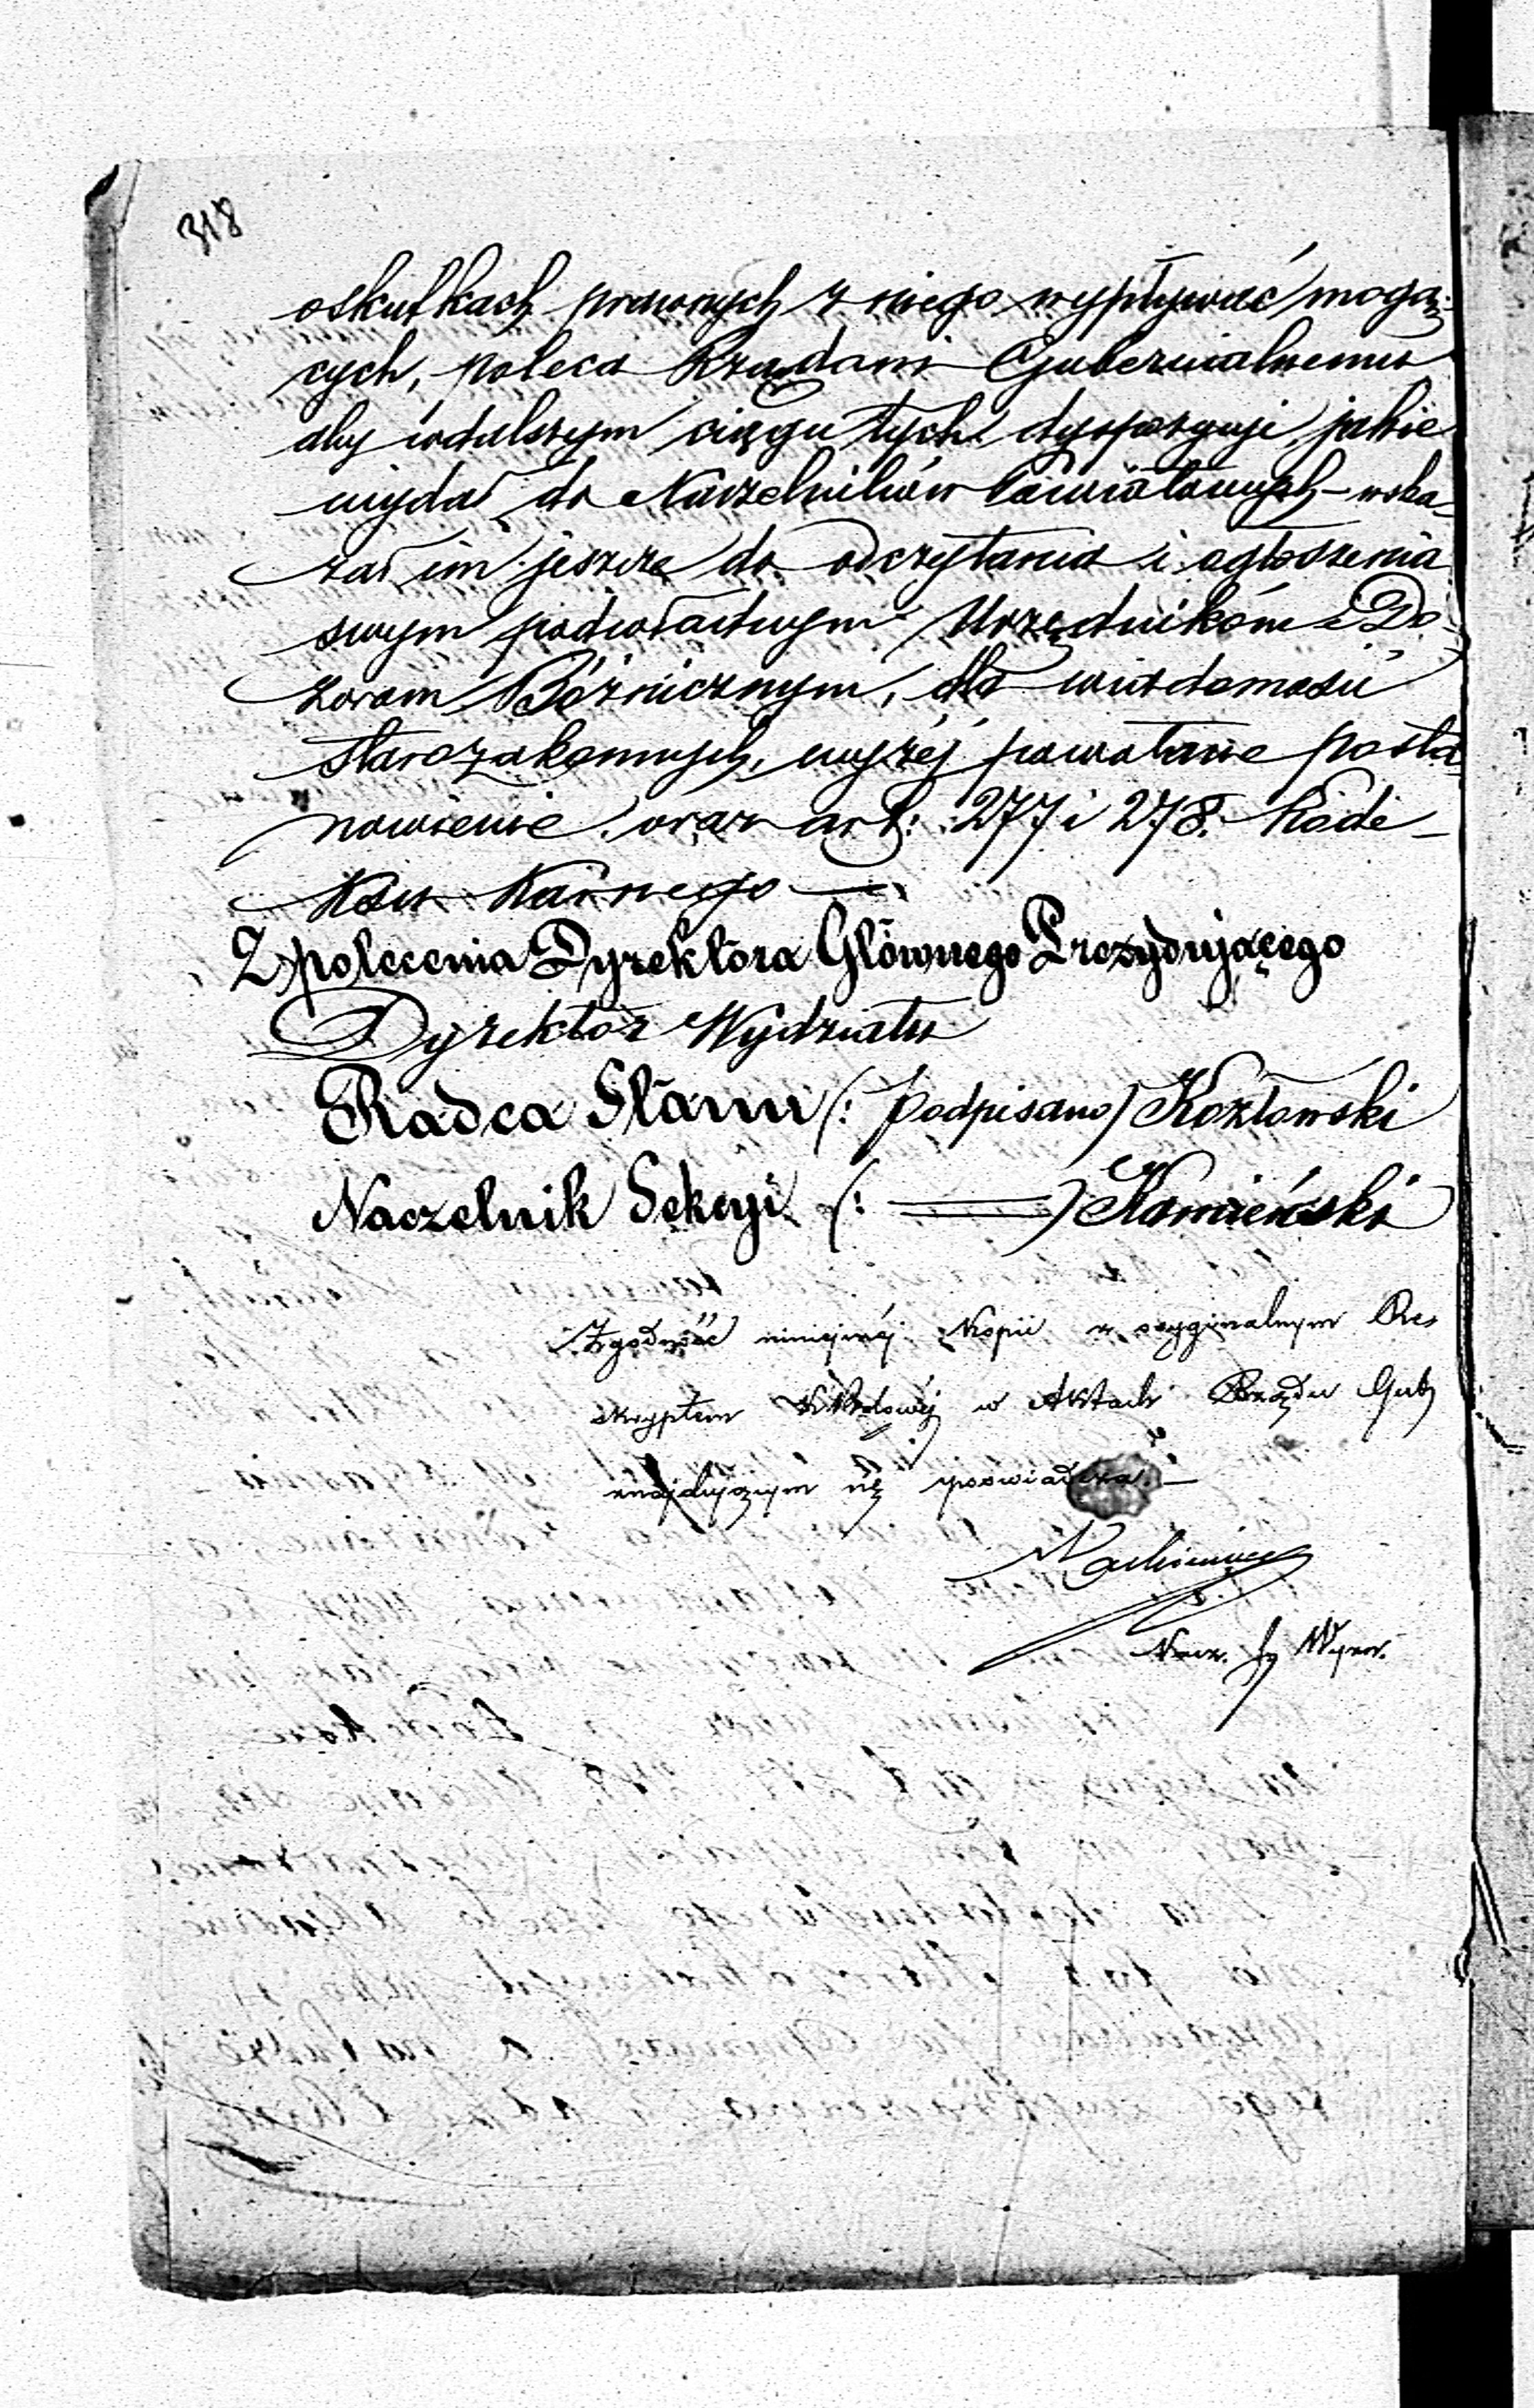 318
o skutkach prawnych z niego wypływać mogą-
cych, poleca Rządowi Gubernialnemu
aby w dalszym ciągu tych dyspozycji, jakie
wydał do Naczelników Powiatowych – wska-
zał im jeszcze do odczytania i ogłoszenia
swym podwładnym Urzędnikom i Do-
zorom Bóżnicznym, dla wiadomości
starozakonnych, wyżéj powołane posta-
nowienie, oraz art: 277 i 278. Kode-
ksu Karnego —
Z polecenia Dyrektora Głównego Prezydującego
Dyrektor Wydziału
Radca Stanu (: podpisano) Kozłowski
Naczelnik Sekcyi (: ═══) Kamieński
Zgodność niniejszéj Kopii z oryginalnym Res-
kryptem w Aktach Rządu Gub
znajdującym się poświadcza. —
Nacz. Wyzn.